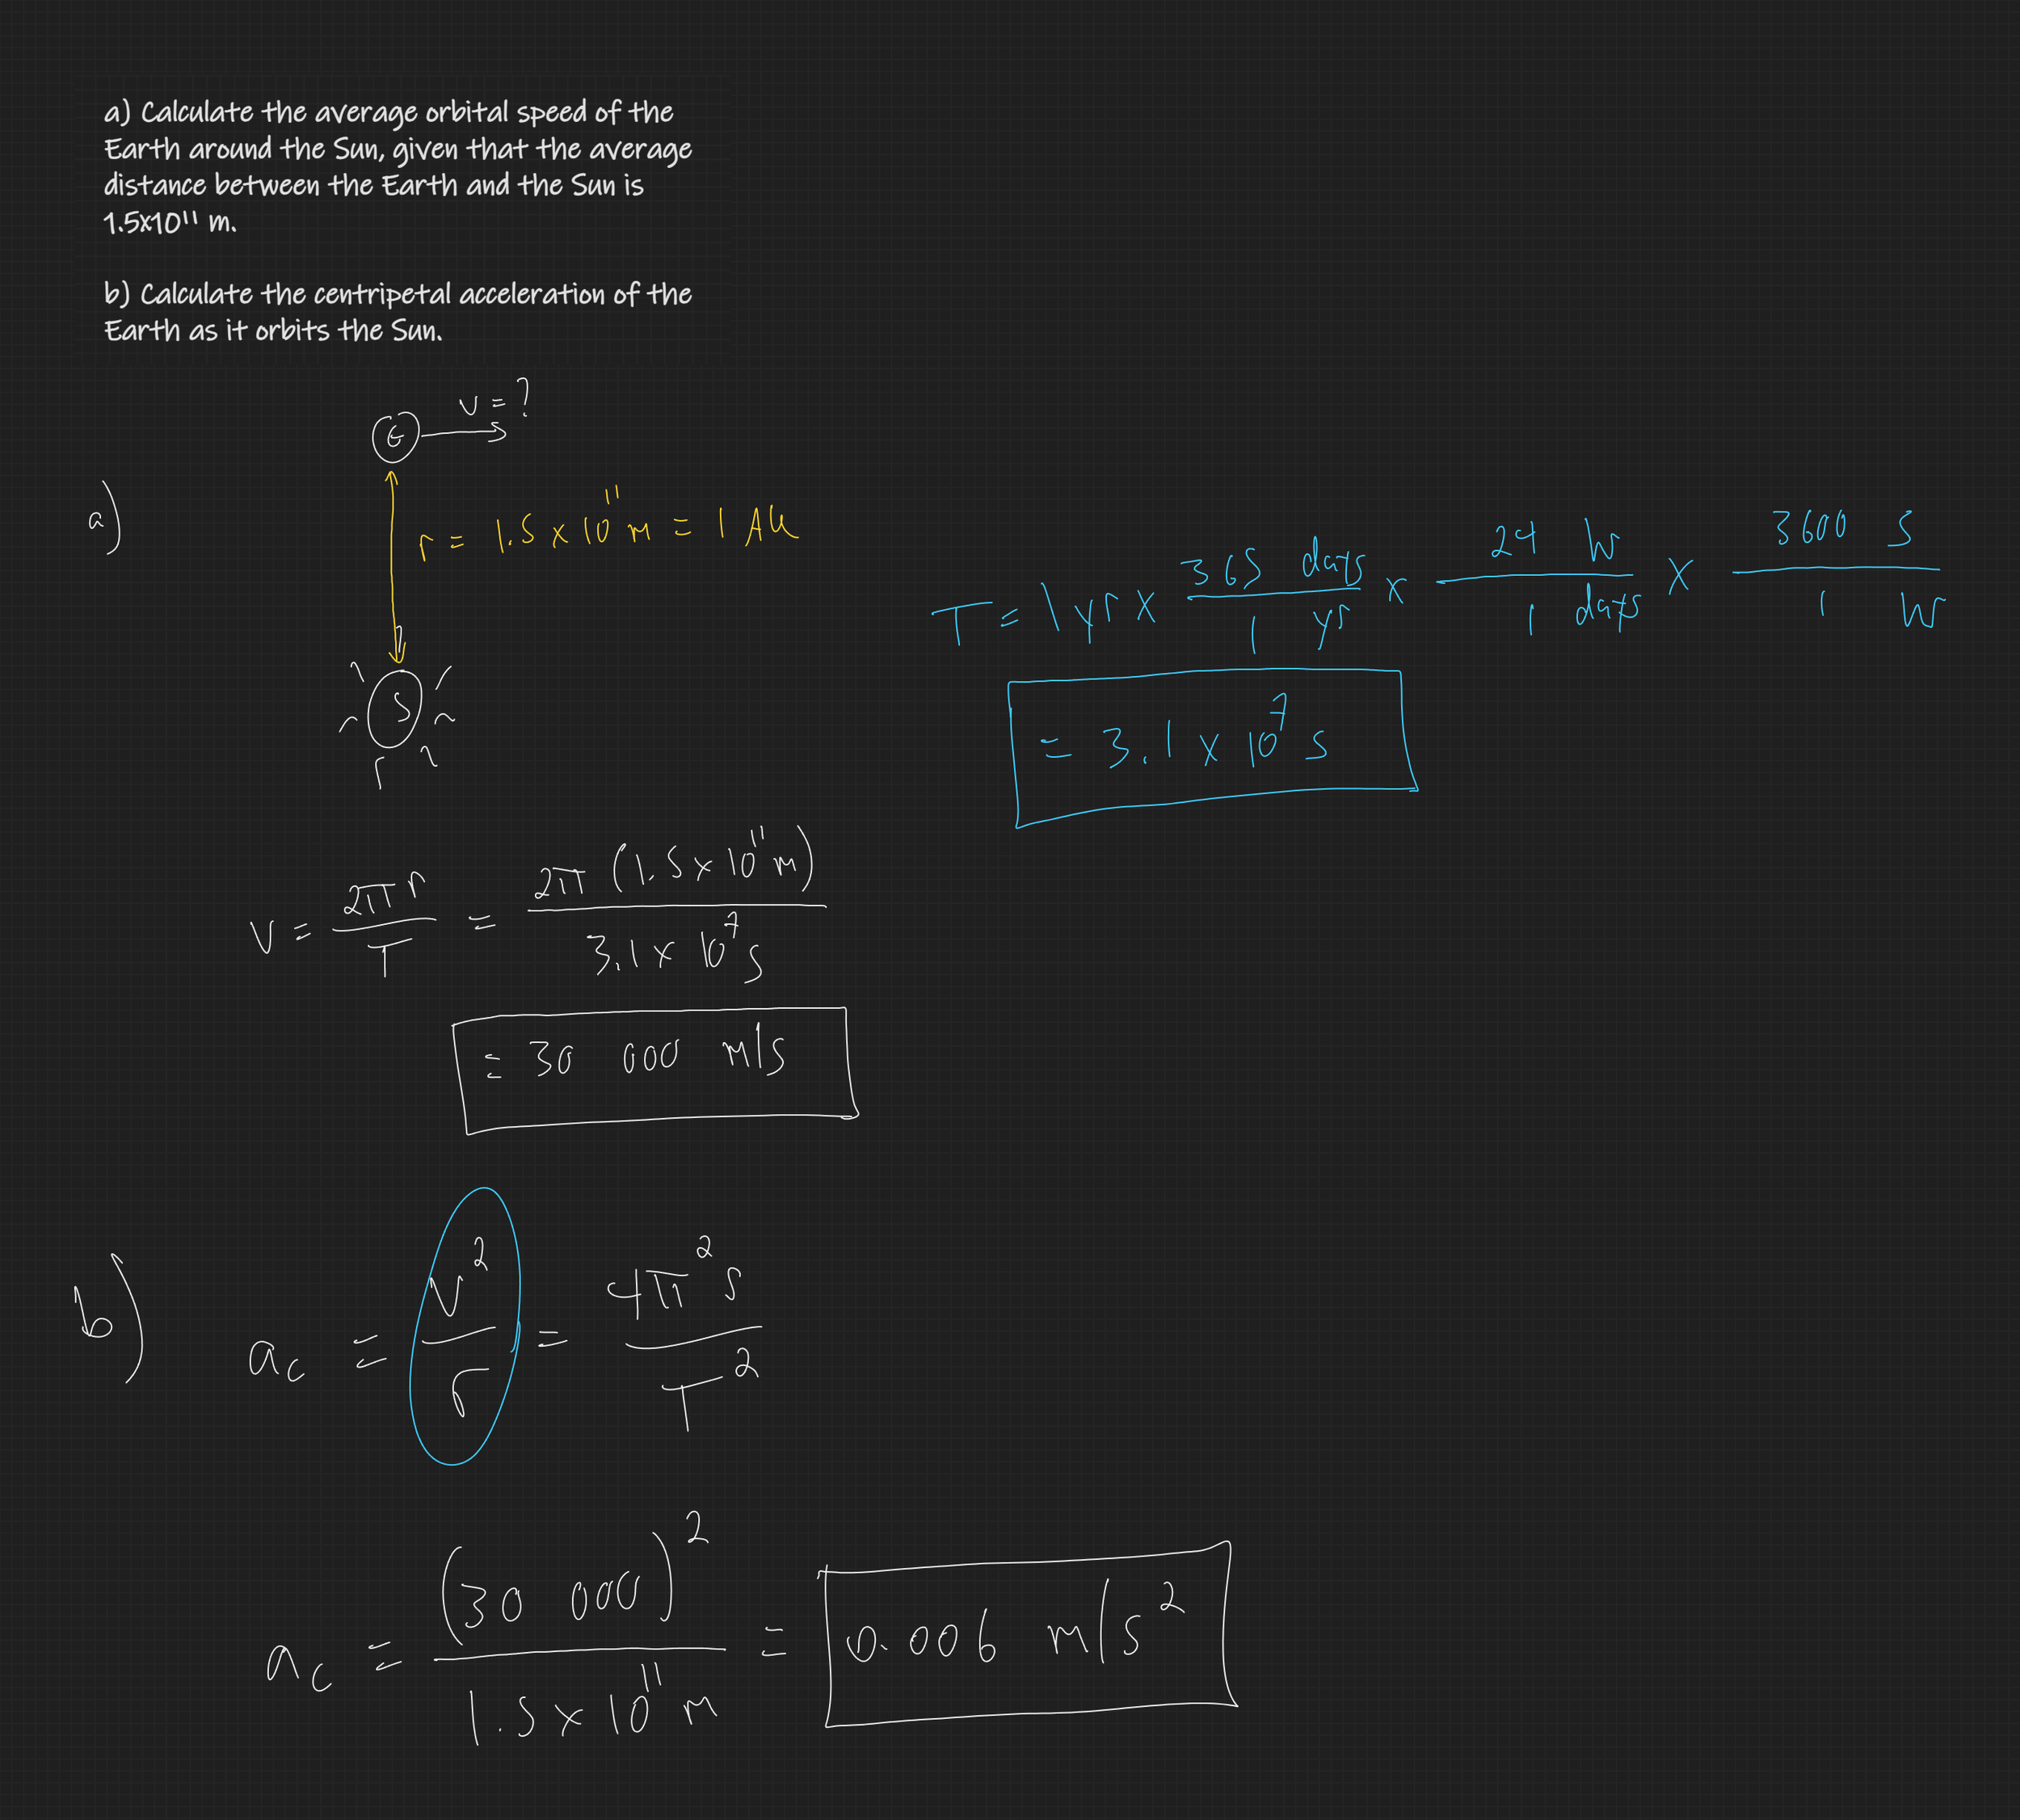 a) Calculate the average orbital speed of the
Earth around the Sun, given that the average
distance between the Earth and the Sun is
1.5x10¹¹ m.
b) Calculate the centripetal acceleration of the
Earth as it orbits the Sun.
a)
E
v = ?
r = 1.5 x 10¹¹ m = 1 AU
S
T = 1 yr x 365 days / 1 yr x 24 hr / 1 days x 3600 s / 1 hr
= 3.1 x 10⁷ s
v = 2πr / T = 2π (1.5 x 10¹¹ m) / 3.1 x 10⁷ s
= 30 000 m/s
b)
a_c = v² / r = 4π² r / T²
a_c = (30 000)² / 1.5 x 10¹¹ m = 0.006 m/s²